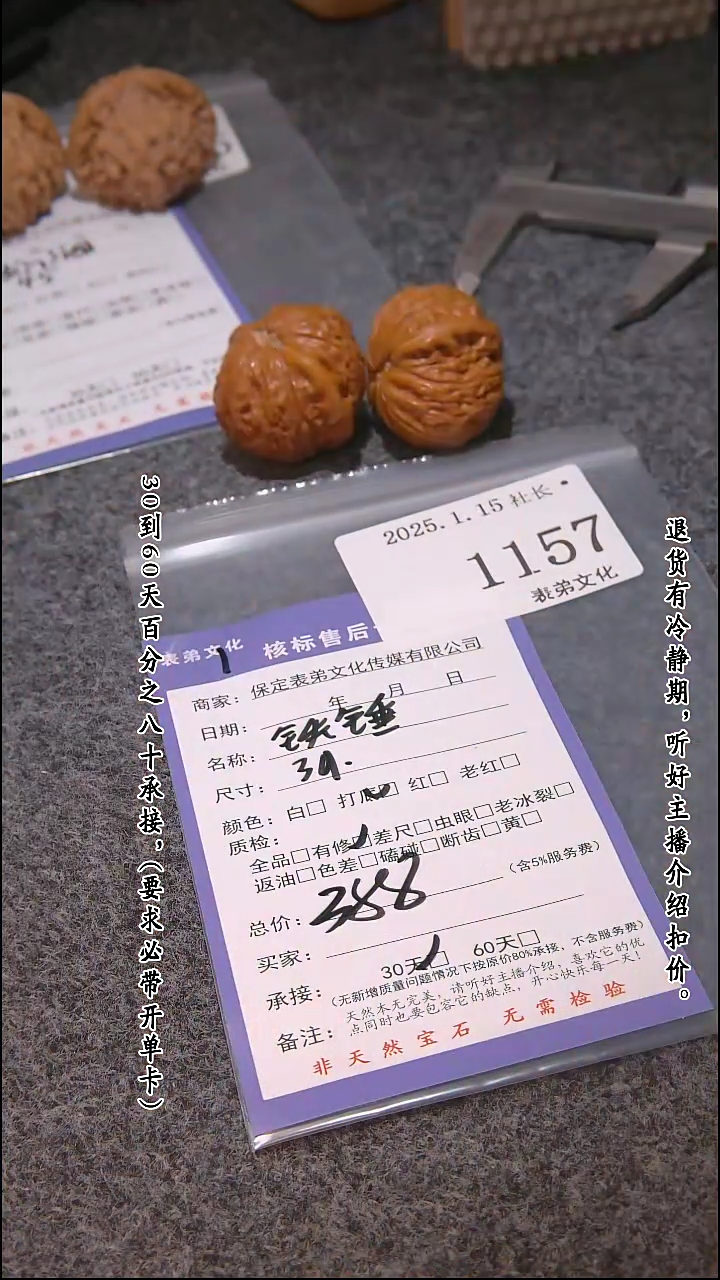 2025.1.15 社长
1157
表弟文化
表弟文化 核标售后
商家：保定表弟文化传媒有限公司
日期： 年 月 日
名称：铁锤
尺寸：39.
颜色：白□ 打底□ 红□ 老红□
质检：
全品□有修□差尺□虫眼□老冰裂□
返油□色差□磕碰□断齿□黄□
总价：388 （含5%服务费）
买家：
承接：30天□ 60天□
（无新增质量问题情况下按原价80%承接，不含服务费）
备注：天然本无完美，请听好主播介绍，喜欢它的优
点同时也要包容它的缺点，开心快乐每一天！
非天然宝石 无需检验
30到60天百分之八十承接，（要求必带开单卡）
退货有冷静期，听好主播介绍扣价。